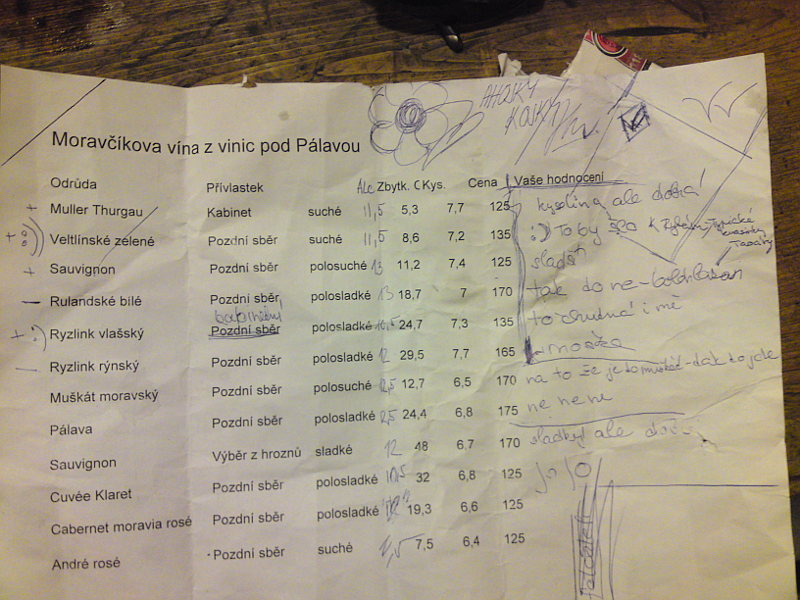 AHOSKY
KOSKY
Moravčíkova vína z vinic pod Pálavou
Odrůda Přívlastek Alc Zbytk. C Kys. Cena Vaše hodnocení
+ Muller Thurgau Kabinet suché 11,5 5,3 7,7 125 kyselina ale dobrá!
+ Veltlínské zelené Pozdní sběr suché 11,5 8,6 7,2 135 :) To by šlo K
+ Sauvignon Pozdní sběr polosuché 13 11,2 7,4 125 sladší
— Rulandské bílé Pozdní sběr, polosladké 13 18,7 7 170 tak do ne-
+ :) Ryzlink vlašský Pozdní sběr polosladké 24,7 7,3 135 to chutná i mě
— Ryzlink rýnský Pozdní sběr polosladké 12 29,5 7,7 165
Muškát moravský Pozdní sběr polosuché 12,5 12,7 6,5 170 na to že je to muškát - tak to jde
Pálava Pozdní sběr polosladké 12,5 24,4 6,8 175 ne ne ne
Sauvignon Výběr z hroznů sladké 12 48 6,7 170 sladký! ale
Cuvée Klaret Pozdní sběr polosladké 10,5 32 6,8 125 jo jo
Cabernet moravia rosé Pozdní sběr polosladké 19,3 6,6 125
André rosé Pozdní sběr suché 7,5 6,4 125